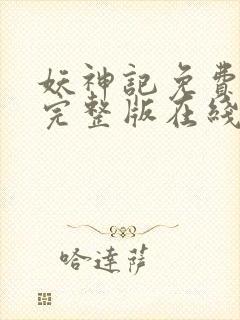 妖神記免費
完整版在綫
哈達薩